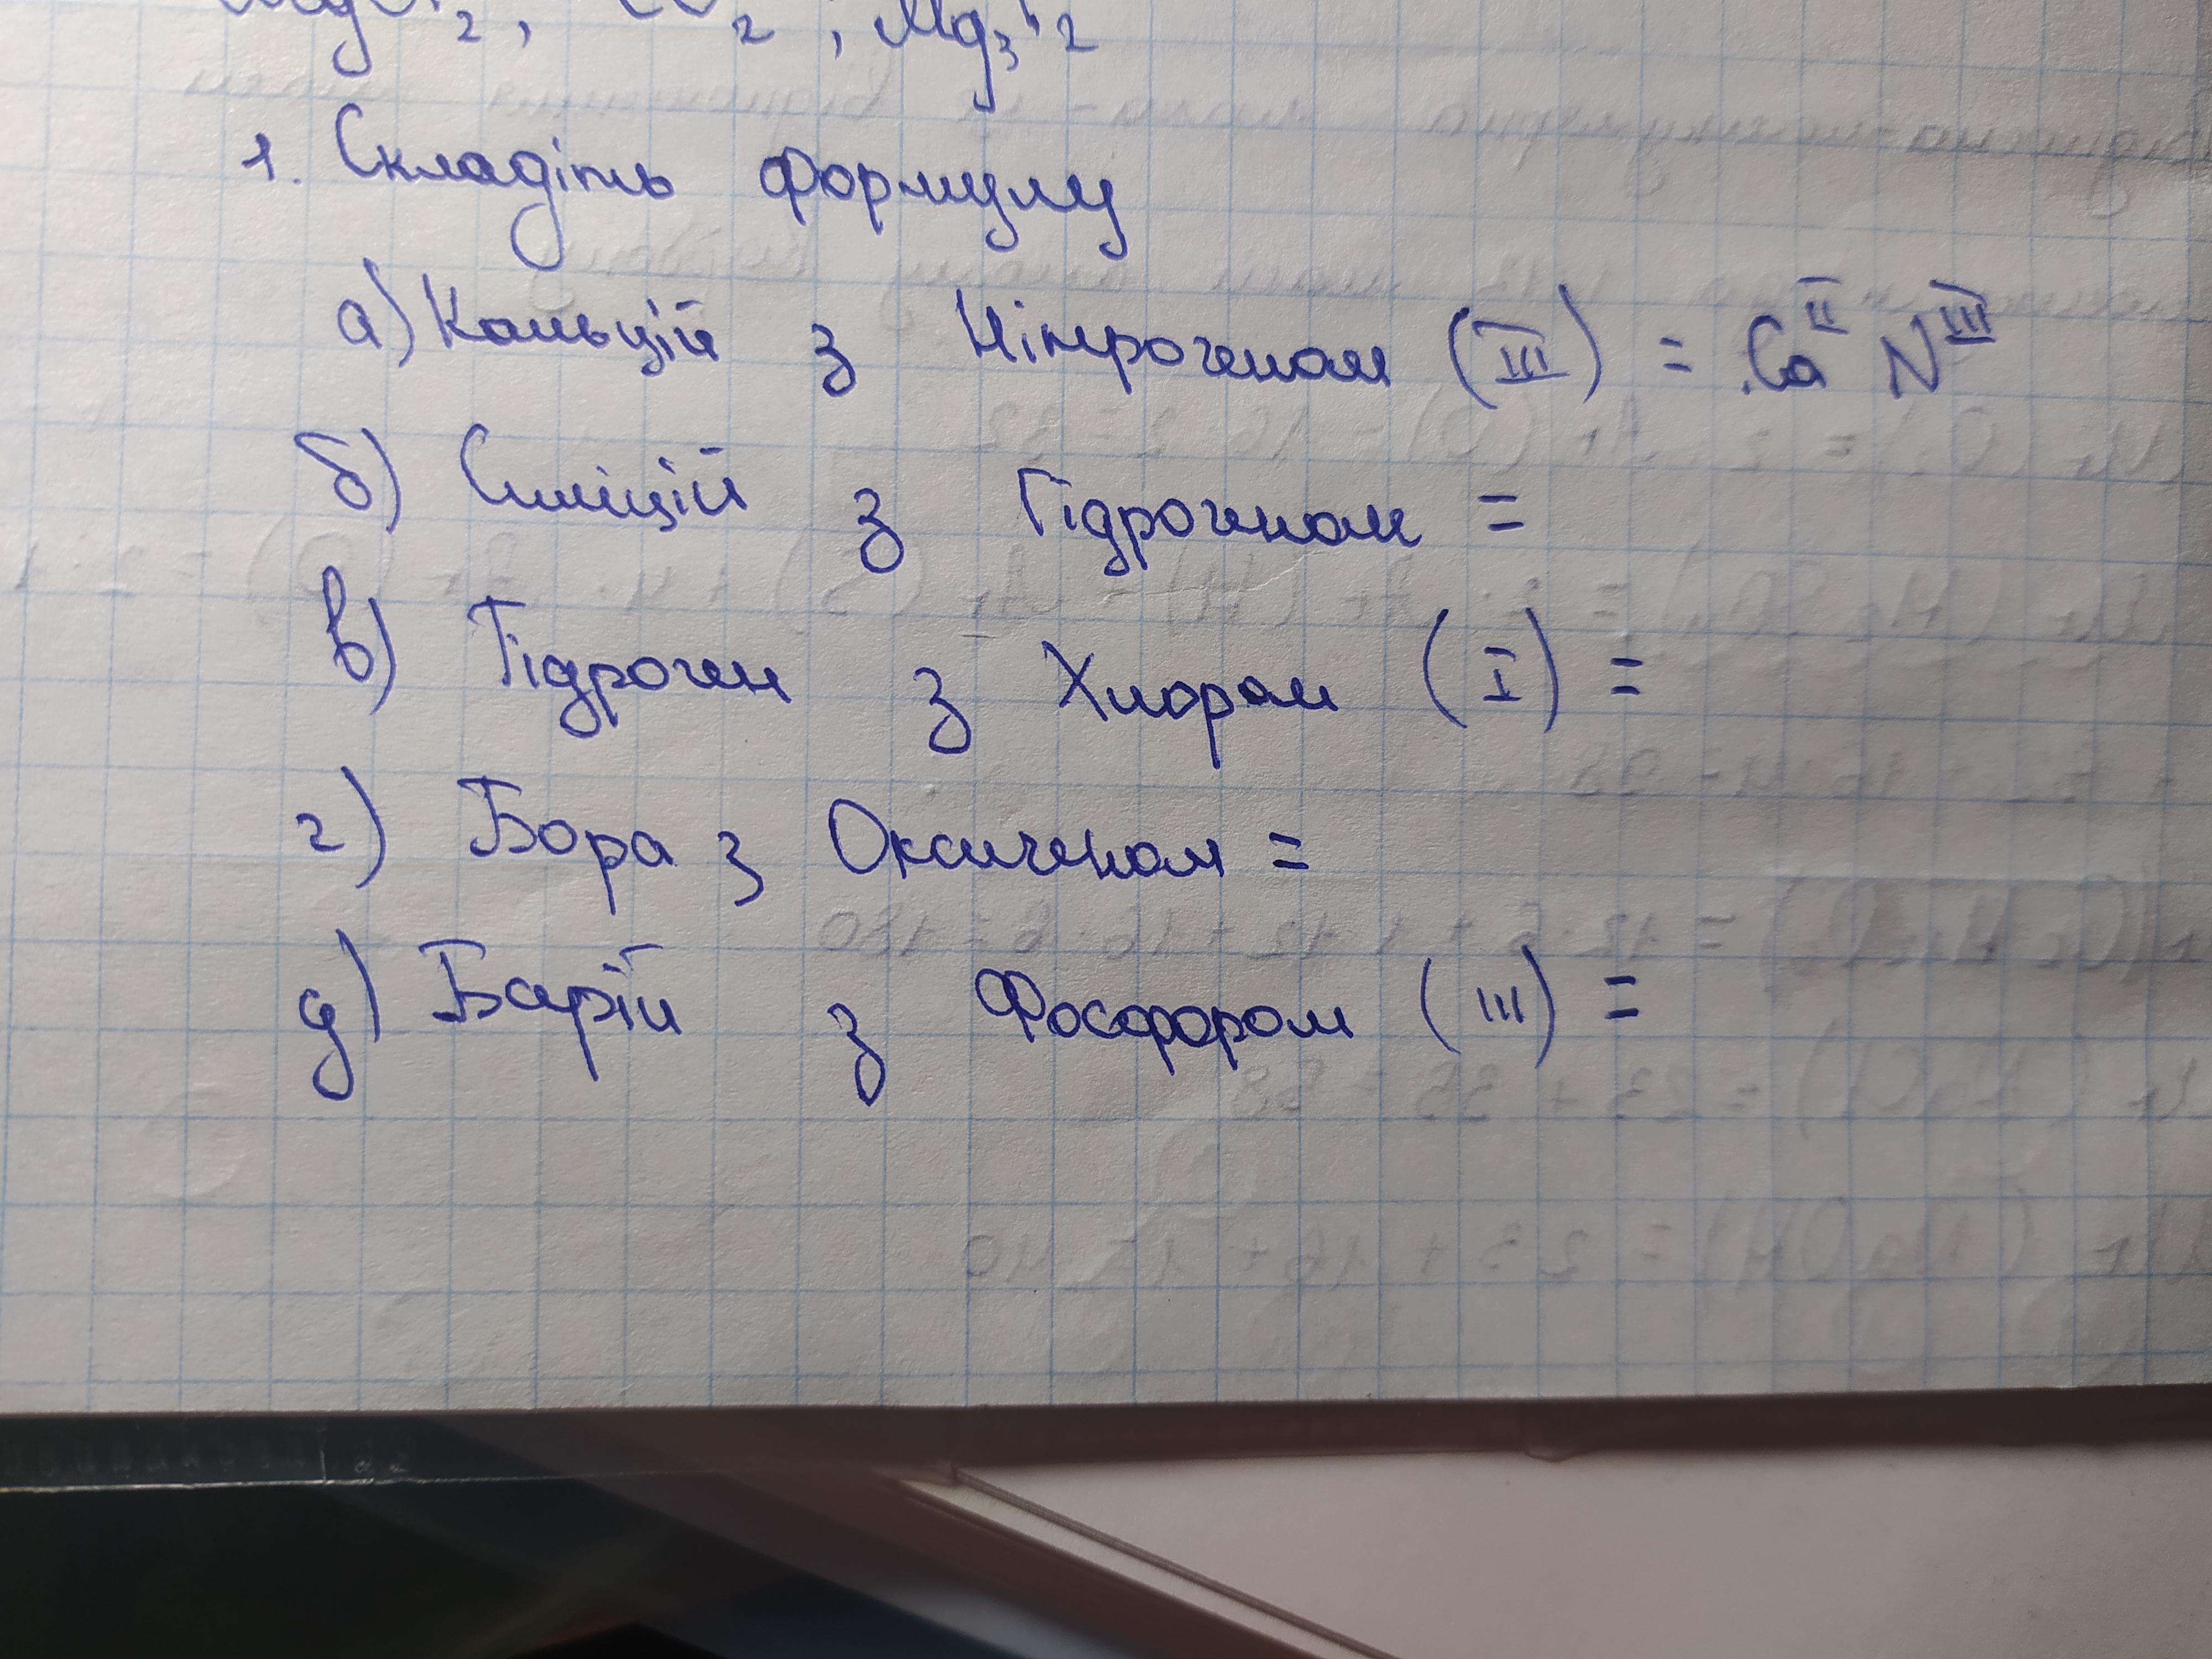 2, 2, Mg3 2
1. Складіть формулу
а) Кальцій з Нітрогеном (III) = Ca^II N^III
б) Силіцій з Гідрогеном =
в) Гідроген з Хлором (I) =
г) Бора з Оксигеном =
д) Барій з Фосфором (III) =